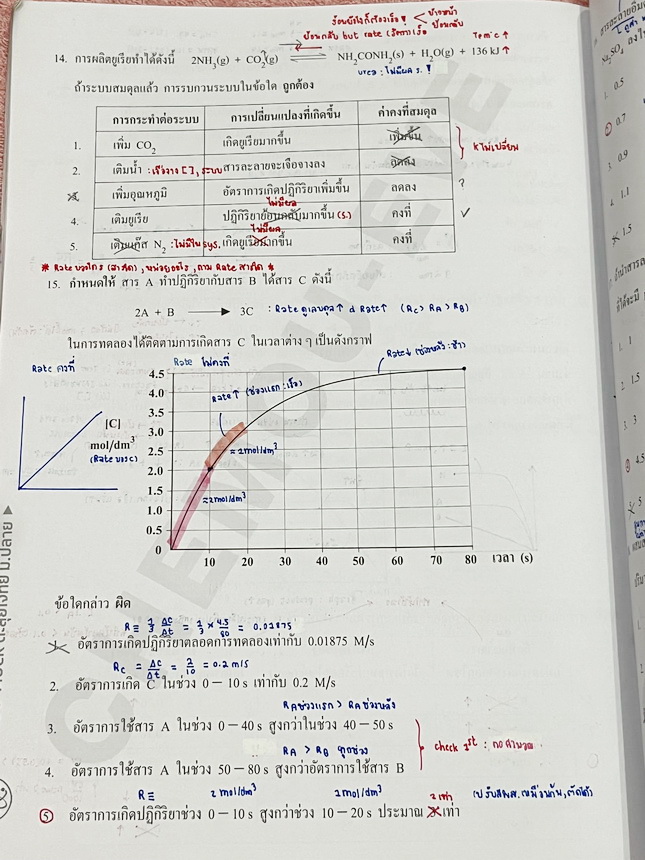 ร้อนยังไงก็ต้องเร็ว ! < ไปข้างหน้า
ย้อนกลับ
ย้อนกลับ but rate (อัตรา) เร็ว
Temp ↑
14. การผลิตยูเรียทำได้ดังนี้ 2NH₃(g) + CO₂(g) ⇌ NH₂CONH₂(s) + H₂O(g) + 136 kJ ↑
urea : ไม่มีผล s. !
ถ้าระบบสมดุลแล้ว การรบกวนระบบในข้อใด ถูกต้อง
การกระทำต่อระบบ การเปลี่ยนแปลงที่เกิดขึ้น ค่าคงที่สมดุล
1. เพิ่ม CO₂ เกิดยูเรียมากขึ้น เพิ่มขึ้น
K ไม่เปลี่ยน
2. เติมน้ำ : เจือจาง [ ], ระบบ สารละลายจะเจือจางลง ลดลง
3. เพิ่มอุณหภูมิ อัตราการเกิดปฏิกิริยาเพิ่มขึ้น ลดลง ?
ไม่มีผล
4. เติมยูเรีย ปฏิกิริยาย้อนกลับมากขึ้น (s.) คงที่ ✓
ไม่มีผล
5. เติมแก๊ส N₂ : ไม่มีใน sys. เกิดยูเรียมากขึ้น คงที่
15. กำหนดให้ สาร A ทำปฏิกิริยากับสาร B ได้สาร C ดังนี้
2A + B → 3C : Rate ดูเลขดุล ↑ d Rate ↑ (Rc > RA > RB)
ในการทดลองได้ติดตามการเกิดสาร C ในเวลาต่าง ๆ เป็นดังกราฟ
Rate คงที่
Rate ไม่คงที่
Rate ↓ (ช่วงหลัง : ช้า)
Rate ↑ (ช่วงแรก : เร็ว)
[C]
mol/dm³
(Rate ของ C)
4.5
4.0
3.5
3.0
2.5
2.0
1.5
1.0
0.5
0
≈ 2 mol/dm³
≈ 2 mol/dm³
10 20 30 40 50 60 70 80 เวลา (s)
ข้อใดกล่าว ผิด
R = 1/3 ΔC/Δt = 1/3 × 4.5/80 = 0.01875
1. อัตราการเกิดปฏิกิริยาตลอดการทดลองเท่ากับ 0.01875 M/s
Rc = ΔC/Δt = 2/10 = 0.2 m/s
2. อัตราการเกิด C ในช่วง 0 – 10 s เท่ากับ 0.2 M/s
RA ช่วงแรก > RA ช่วงหลัง
3. อัตราการใช้สาร A ในช่วง 0 – 40 s สูงกว่าในช่วง 40 – 50 s
check 1st : no คำนวณ
RA > RB ทุกช่วง
4. อัตราการใช้สาร A ในช่วง 50 – 80 s สูงกว่าอัตราการใช้สาร B
R = 2 mol/dm³ 2 mol/dm³ 2 เท่า
5 อัตราการเกิดปฏิกิริยาช่วง 0 – 10 s สูงกว่าช่วง 10 – 20 s ประมาณ เท่า
Na₂SO₄
1. 0.5
2 0.7
3. 0.9
4. 1.1
1.5
1. 1
2. 1.5
3. 3
4.5
5
CHEM